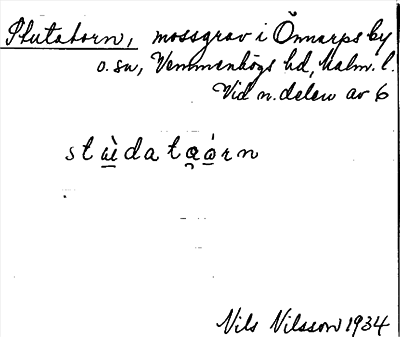 Stutatorn, mossgrav i Önnarps by
o. sn, Vemmenhögs hd, Malm. l.
Vid n. delen av 6
Nils Nilsson 1934